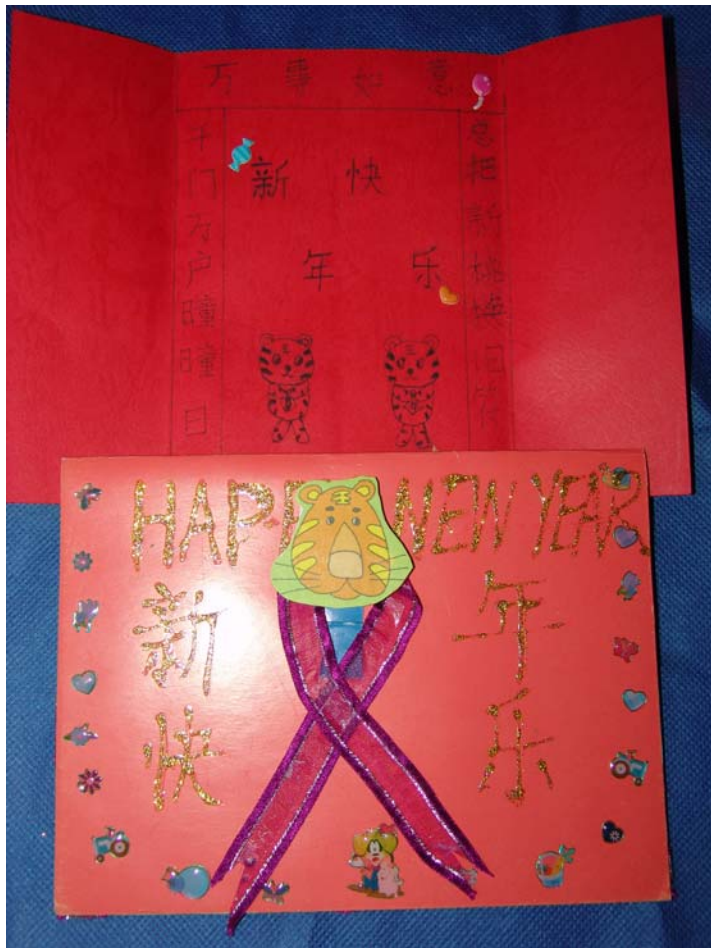 万事如意
千门万户曈曈日
新 快
年 乐
总把新桃换旧符
HAPPY NEW YEAR
新 年
快 乐